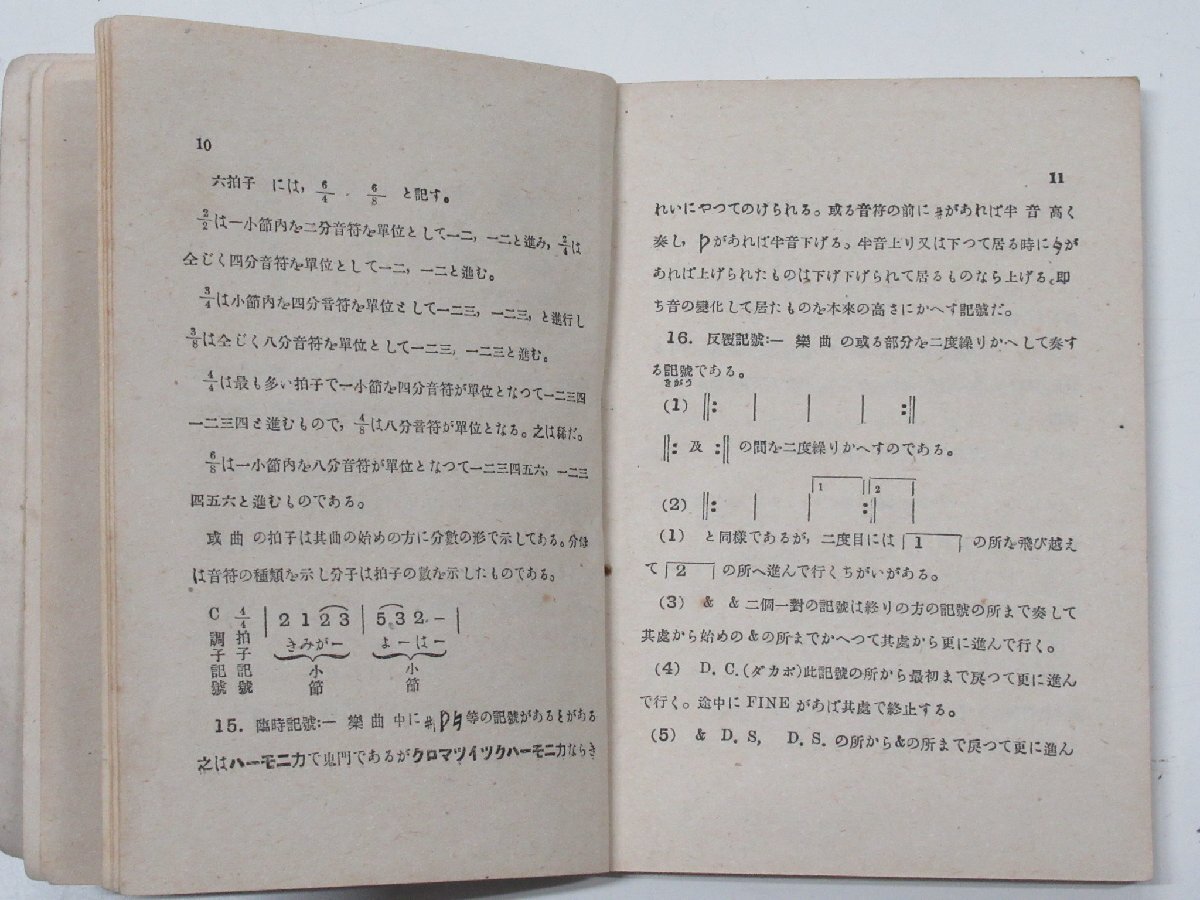 10
六拍子 には, 6/4 . 6/8 と記す。
2/2は一小節内を二分音符を單位として一二, 一二と進み, 2/4は
仝じく四分音符を單位として一二, 一二と進む。
3/4は小節内を四分音符を單位として一二三, 一二三, と進行し
3/8は仝じく八分音符を單位として一二三, 一二三と進む。
4/4は最も多い拍子で一小節を四分音符が單位となつて一二三四
一二三四と進むもので, 4/8は八分音符が單位となる。之は稀だ。
6/8は一小節内を八分音符が單位となつて一二三四五六, 一二三
四五六と進むものである。
或曲の拍子は其曲の始めの方に分數の形で示してある。分母
は音符の種類を示し分子は拍子の數を示したものである。
C 4/4 | 2 1 2 3 | 5 3 2 − |
きみがー よーはー
調子記號 拍子記號 小節 小節
15. 臨時記號:― 樂曲中に♯♭♮等の記號があるとがある
之はハーモニカで専門であるがクロマツイツクハーモニカならき
11
れいにやつてのけられる。或る音符の前に♯があれば半音高く
奏し, ♭があれば半音下げる。半音上り又は下つて居る時に♮が
あれば上げられたものは下げ下げられて居るものなら上げる。即
ち音の變化して居たものを本來の高さにかへす記號だ。
16. 反覆記號:― 樂曲の或る部分を二度繰りかへして奏す
る記號である。
きがう
(1) ‖: | | | :‖
‖: 及 :‖ の間を二度繰りかへすのである。
(2) ‖: | | 1 :‖ 2 |
(1) と同樣であるが, 二度目には 1 の所を飛び越え
て 2 の所へ進んで行くちがいがある。
(3) & & 二個一對の記號は終りの方の記號の所まで奏して
其處から始めの&の所までかへつて其處から更に進んで行く。
(4) D. C. (ダカポ)此記號の所から最初まで戻つて更に進ん
で行く。途中に FINE があば其處で終止する。
(5) & D. S, D. S. の所から&の所まで戻つて更に進ん